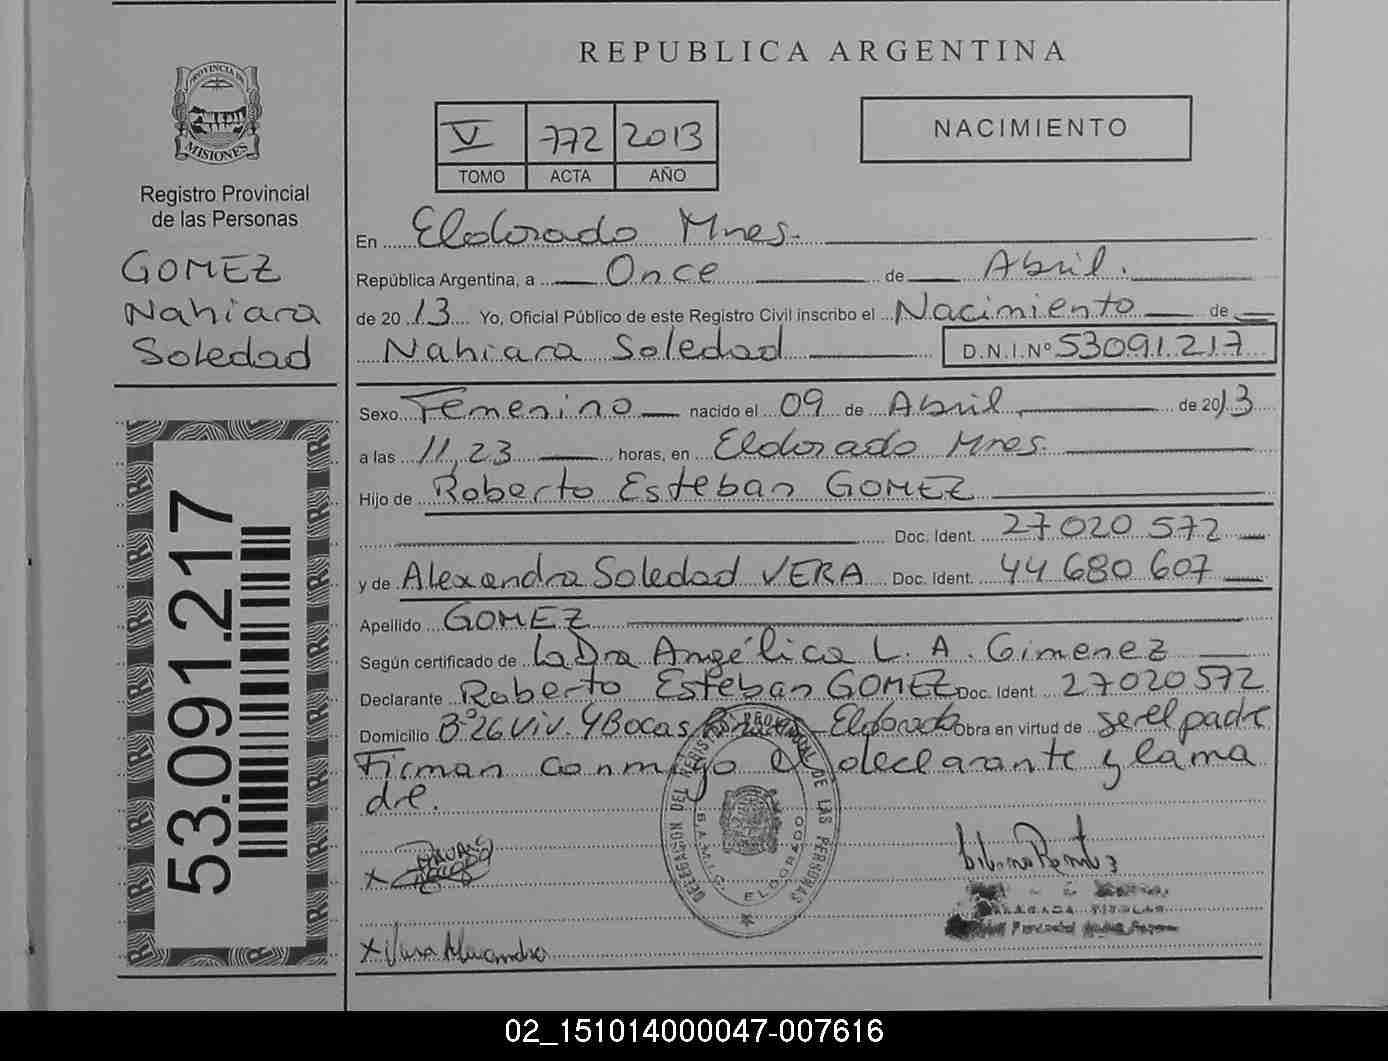 REPUBLICA ARGENTINA
PROVINCIA DE
MISIONES
Registro Provincial
de las Personas
GOMEZ
Nahiara
Soledad
53.091.217
V 772 2013
TOMO ACTA AÑO
NACIMIENTO
En Eldorado Mnes.
República Argentina, a Once de Abril.
de 2013 Yo, Oficial Público de este Registro Civil inscribo el Nacimiento de
Nahiara Soledad D.N.I.Nº 53091217
Sexo Femenino nacido el 09 de Abril de 2013
a las 11,23 horas, en Eldorado Mnes.
Hijo de Roberto Esteban GOMEZ
Doc. Ident. 27020572
y de Alexandra Soledad VERA Doc. Ident. 44 680 607
Apellido GOMEZ
Según certificado de la Dra Angélica L. A. Gimenez
Declarante Roberto Esteban GOMEZ Doc. Ident. 27020572
Domicilio Bº 26 Viv. 4 Bocas Eldorado Obra en virtud de ser el padre
Firman conmigo el declarante y la ma
dre.
DELEGACION DEL REGISTRO PROVINCIAL DE LAS PERSONAS
ELDORADO
X
X Vera Alexandra
02_151014000047-007616